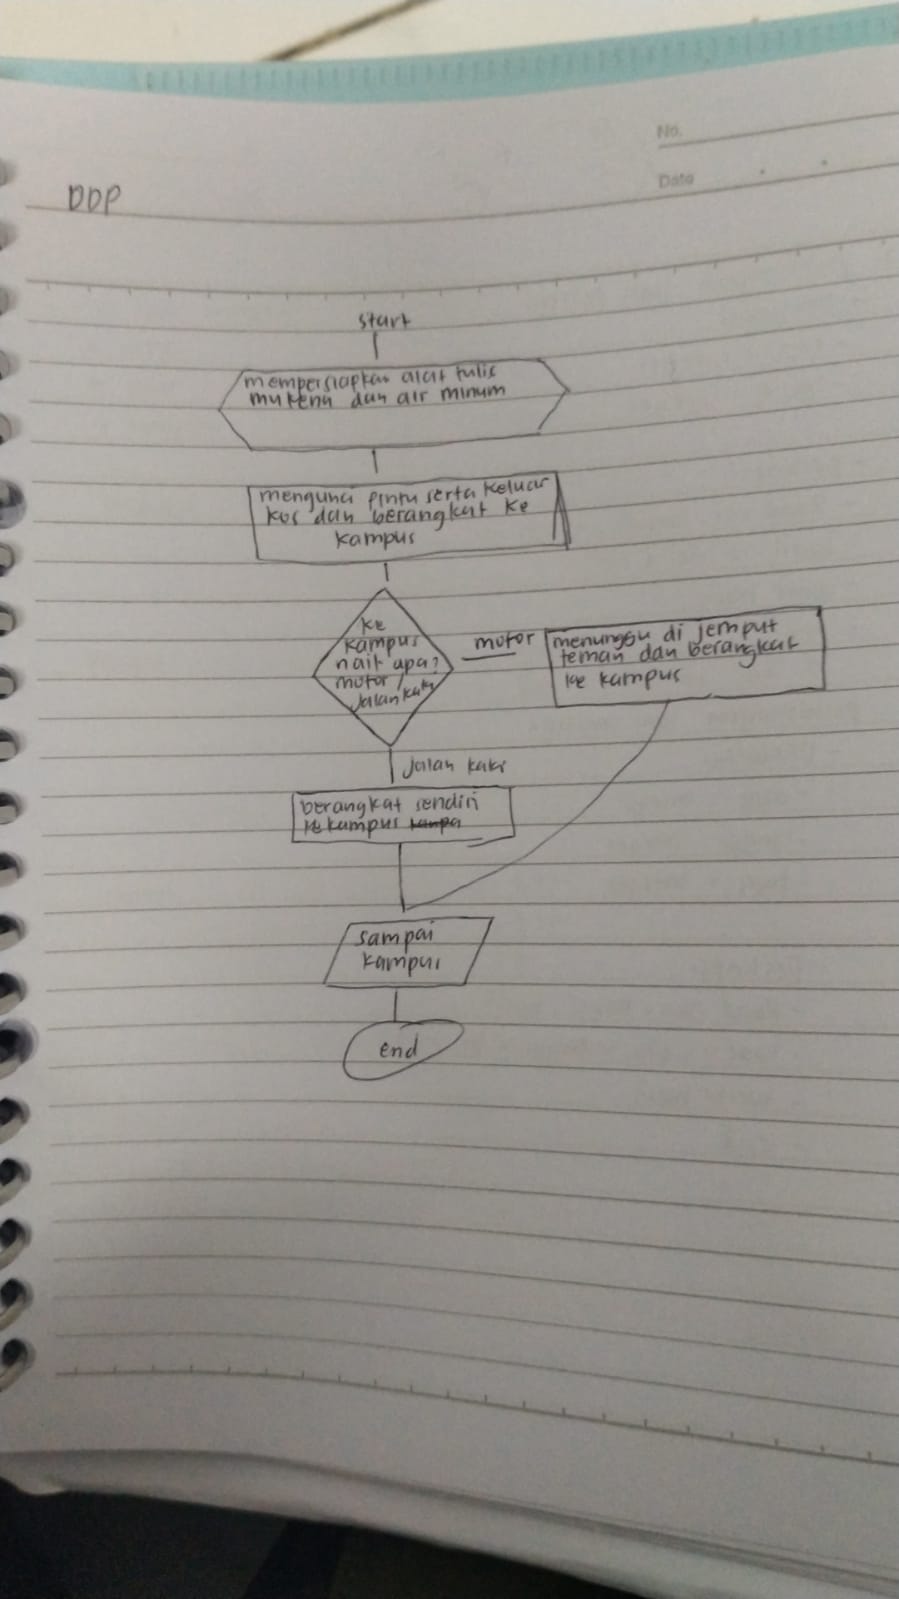 No.
Date
DDP
start
mempersiapkan alat tulis
mukena dan air minum
mengunci pintu serta keluar
kos dan berangkat ke
kampus
ke
kampus
naik apa?
motor /
Jalan kaki
motor
menunggu di jemput
teman dan berangkat
ke kampus
Jalan kaki
berangkat sendiri
ke kampus
sampai
kampus
end